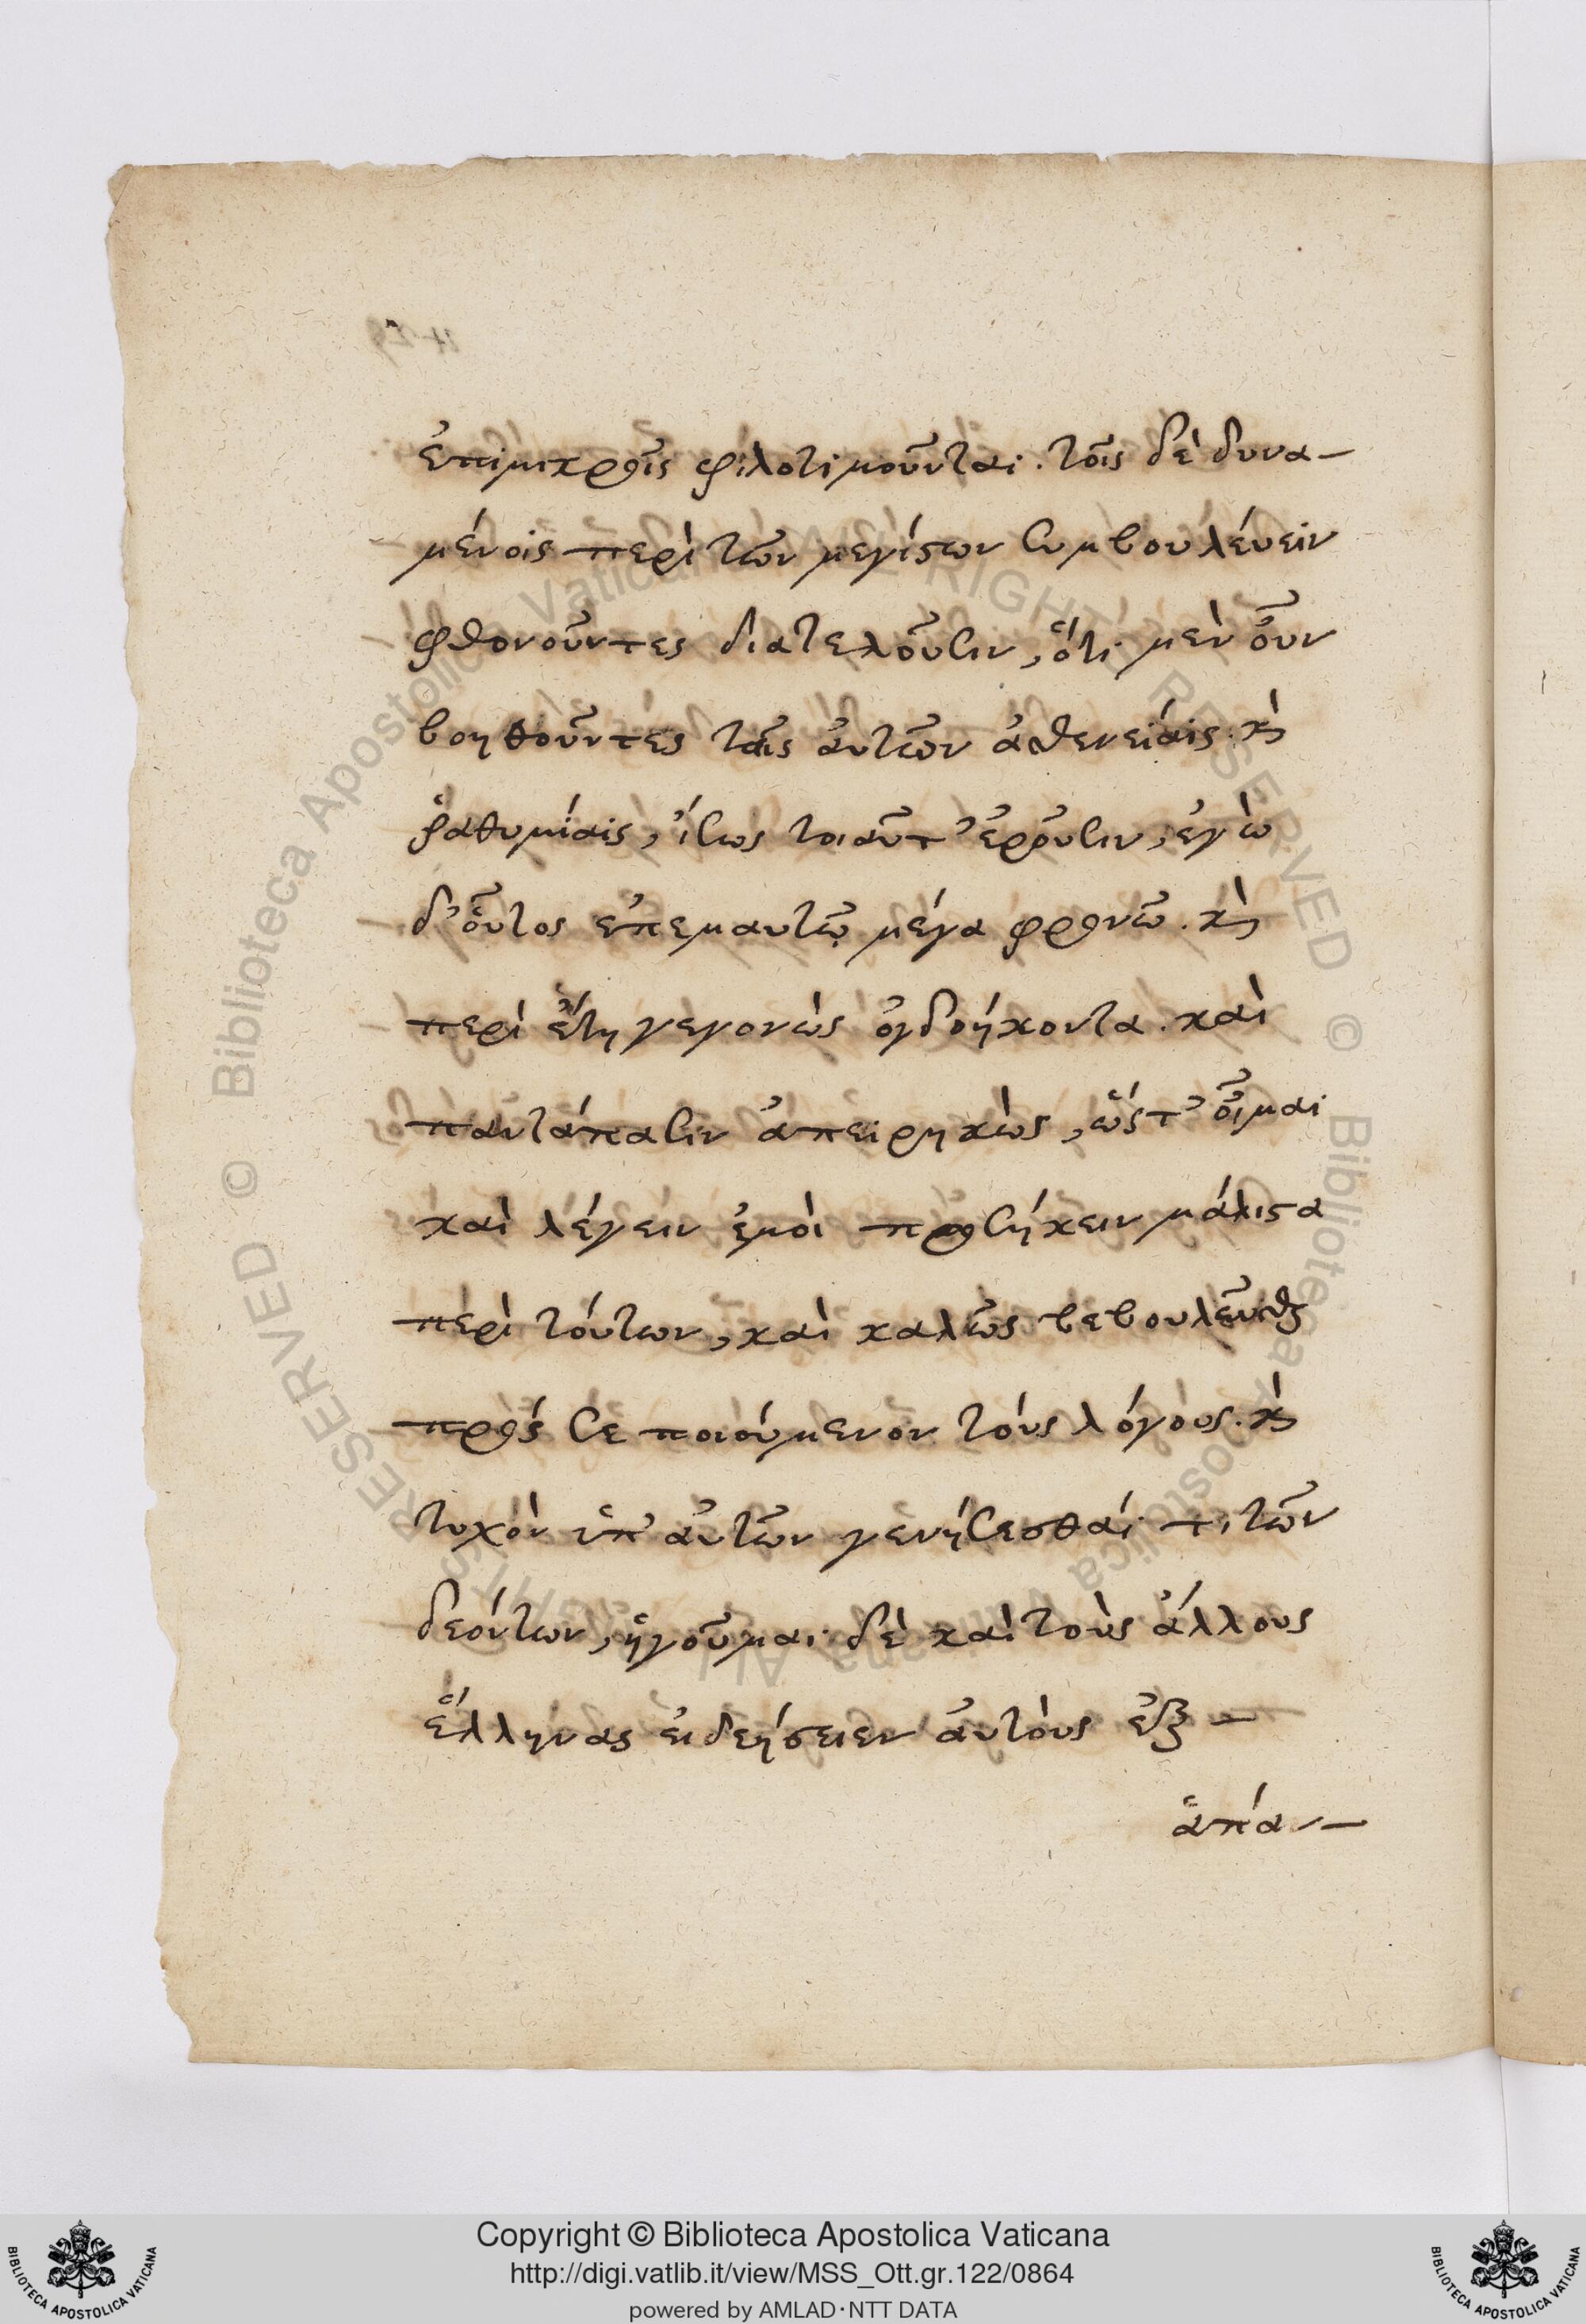 ἐπιμικροῖς φιλοτιμοῦνται. τοῖς δὲ δυνα-
μένοις περὶ τῶν μεγίστων συμβουλέυειν
φθονοῦντες διατελοῦσιν, ὅτι μὲν οὖν
βοηθοῦντες ταῖς ἀυτῶν ἀσθενείαις. κὶ
ῥαθυμίαις, ἴσως τοιαῦτ' ἐροῦσιν, ἐγὼ
δ' ὅυτος επ εμαυτῷ μέγα φρονῶ. κὶ
περὶ ἔτη γεγονὼς ὀγδοήκοντα. καὶ
παντάπασιν ἀπειρηκὼς, ὥςτ' οἶμαι
καὶ λέγειν ἐμοὶ προσήκειν μάλιστα
περὶ τούτων, καὶ καλῶς βεβουλεῦσθαι
πρός σε ποιούμενον τούς λόγους. κὶ
τυχὸν ὑπ' ἀυτῶν γενήσεσθαί τι τῶν
δεόντων, ἡγοῦμαι δὲ καὶ τοὺς ἄλλους
ἕλληνας ει δεήσειεν ἀυτοὺς ἐξ -
ἁπά--
Copyright © Biblioteca Apostolica Vaticana
http://digi.vatlib.it/view/MSS_Ott.gr.122/0864
powered by AMLAD · NTT DATA
BIBLIOTECA APOSTOLICA VATICANA
BIBLIOTECA APOSTOLICA VATICANA
© Biblioteca Apostolica Vaticana ALL RIGHTS RESERVED
© Biblioteca Apostolica Vaticana ALL RIGHTS RESERVED